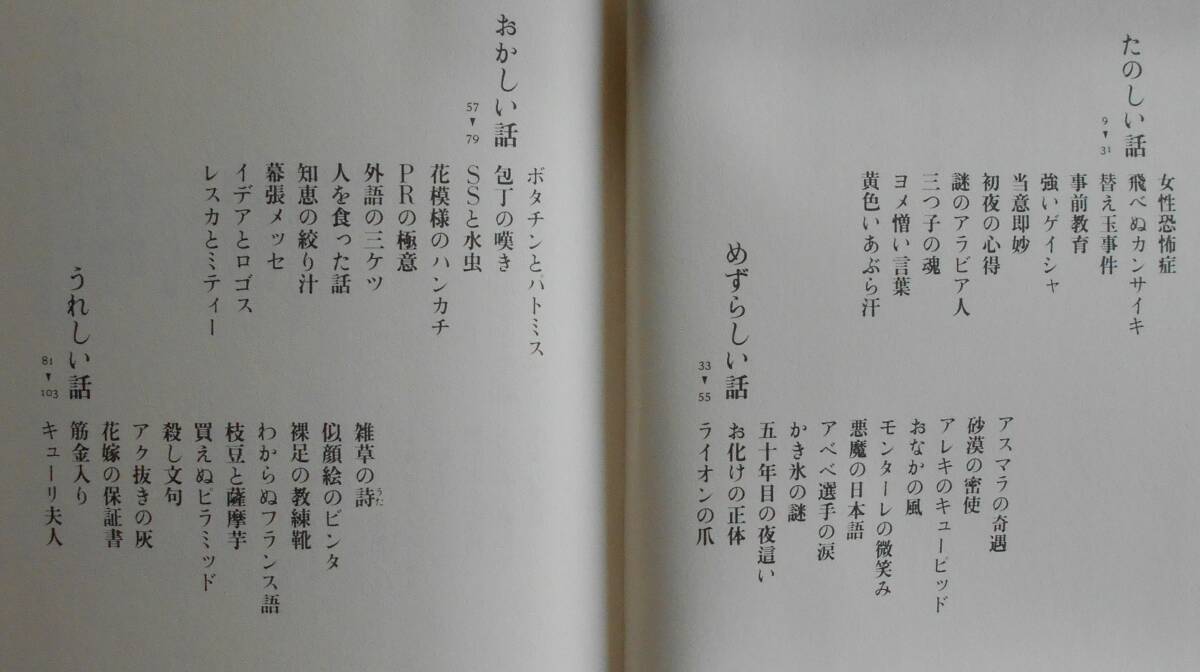 たのしい話
9▼31
女性恐怖症
飛べぬカンサイキ
替え玉事件
事前教育
強いゲイシャ
当意即妙
初夜の心得
謎のアラビア人
三つ子の魂
ヨメ憎い言葉
黄色いあぶら汗
めずらしい話
33▼55
アスマラの奇遇
砂漠の密使
アレキのキューピッド
おなかの風
モンターレの微笑み
悪魔の日本語
アベベ選手の涙
かき氷の謎
五十年目の夜這い
お化けの正体
ライオンの爪
おかしい話
57▼79
ボタチンとパトミス
包丁の嘆き
SSと水虫
花模様のハンカチ
PRの極意
外語の三ケツ
人を食った話
知恵の絞り汁
幕張メッセ
イデアとロゴス
レスカとミティー
うれしい話
81▼103
雑草の詩うた
似顔絵のビンタ
裸足の教練靴
わからぬフランス語
枝豆と薩摩芋
買えぬピラミッド
殺し文句
アク抜きの灰
花嫁の保証書
筋金入り
キューリ夫人